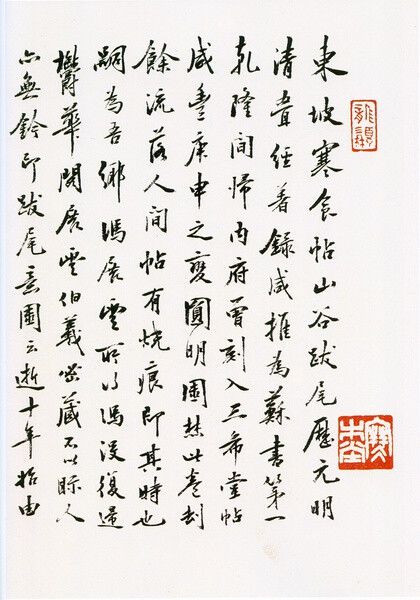 東坡寒食帖山谷跋尾歷元明
清疊經著錄咸推為蘇書第一
乾隆間歸內府曾刻入三希堂帖
咸豐庚申之變圓明園焚此卷刦
餘流落人間帖有燒痕即其時也
嗣為吾鄉馮展雲所得馮沒復歸
鬱華閣展雲伯羲密藏不以眎人
亦無鈐印跋尾意園云逝十年始由